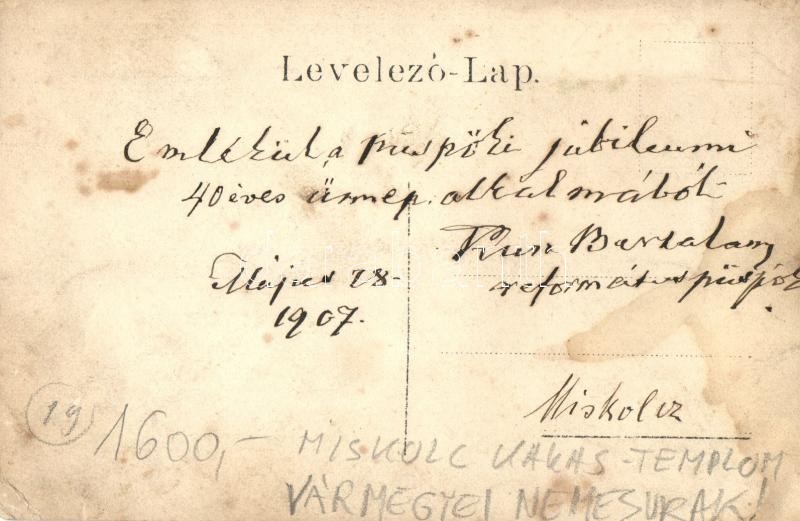 Levelező-Lap.
Emlékül a püspöki jubileumi
40 éves ünnep alkalmából
Kun Bertalan
református püspök
Május 28-
1907.
Miskolcz
19
1600,-
MISKOLC KAKAS-TEMPLOM
VÁRMEGYEI NEMESURAK!